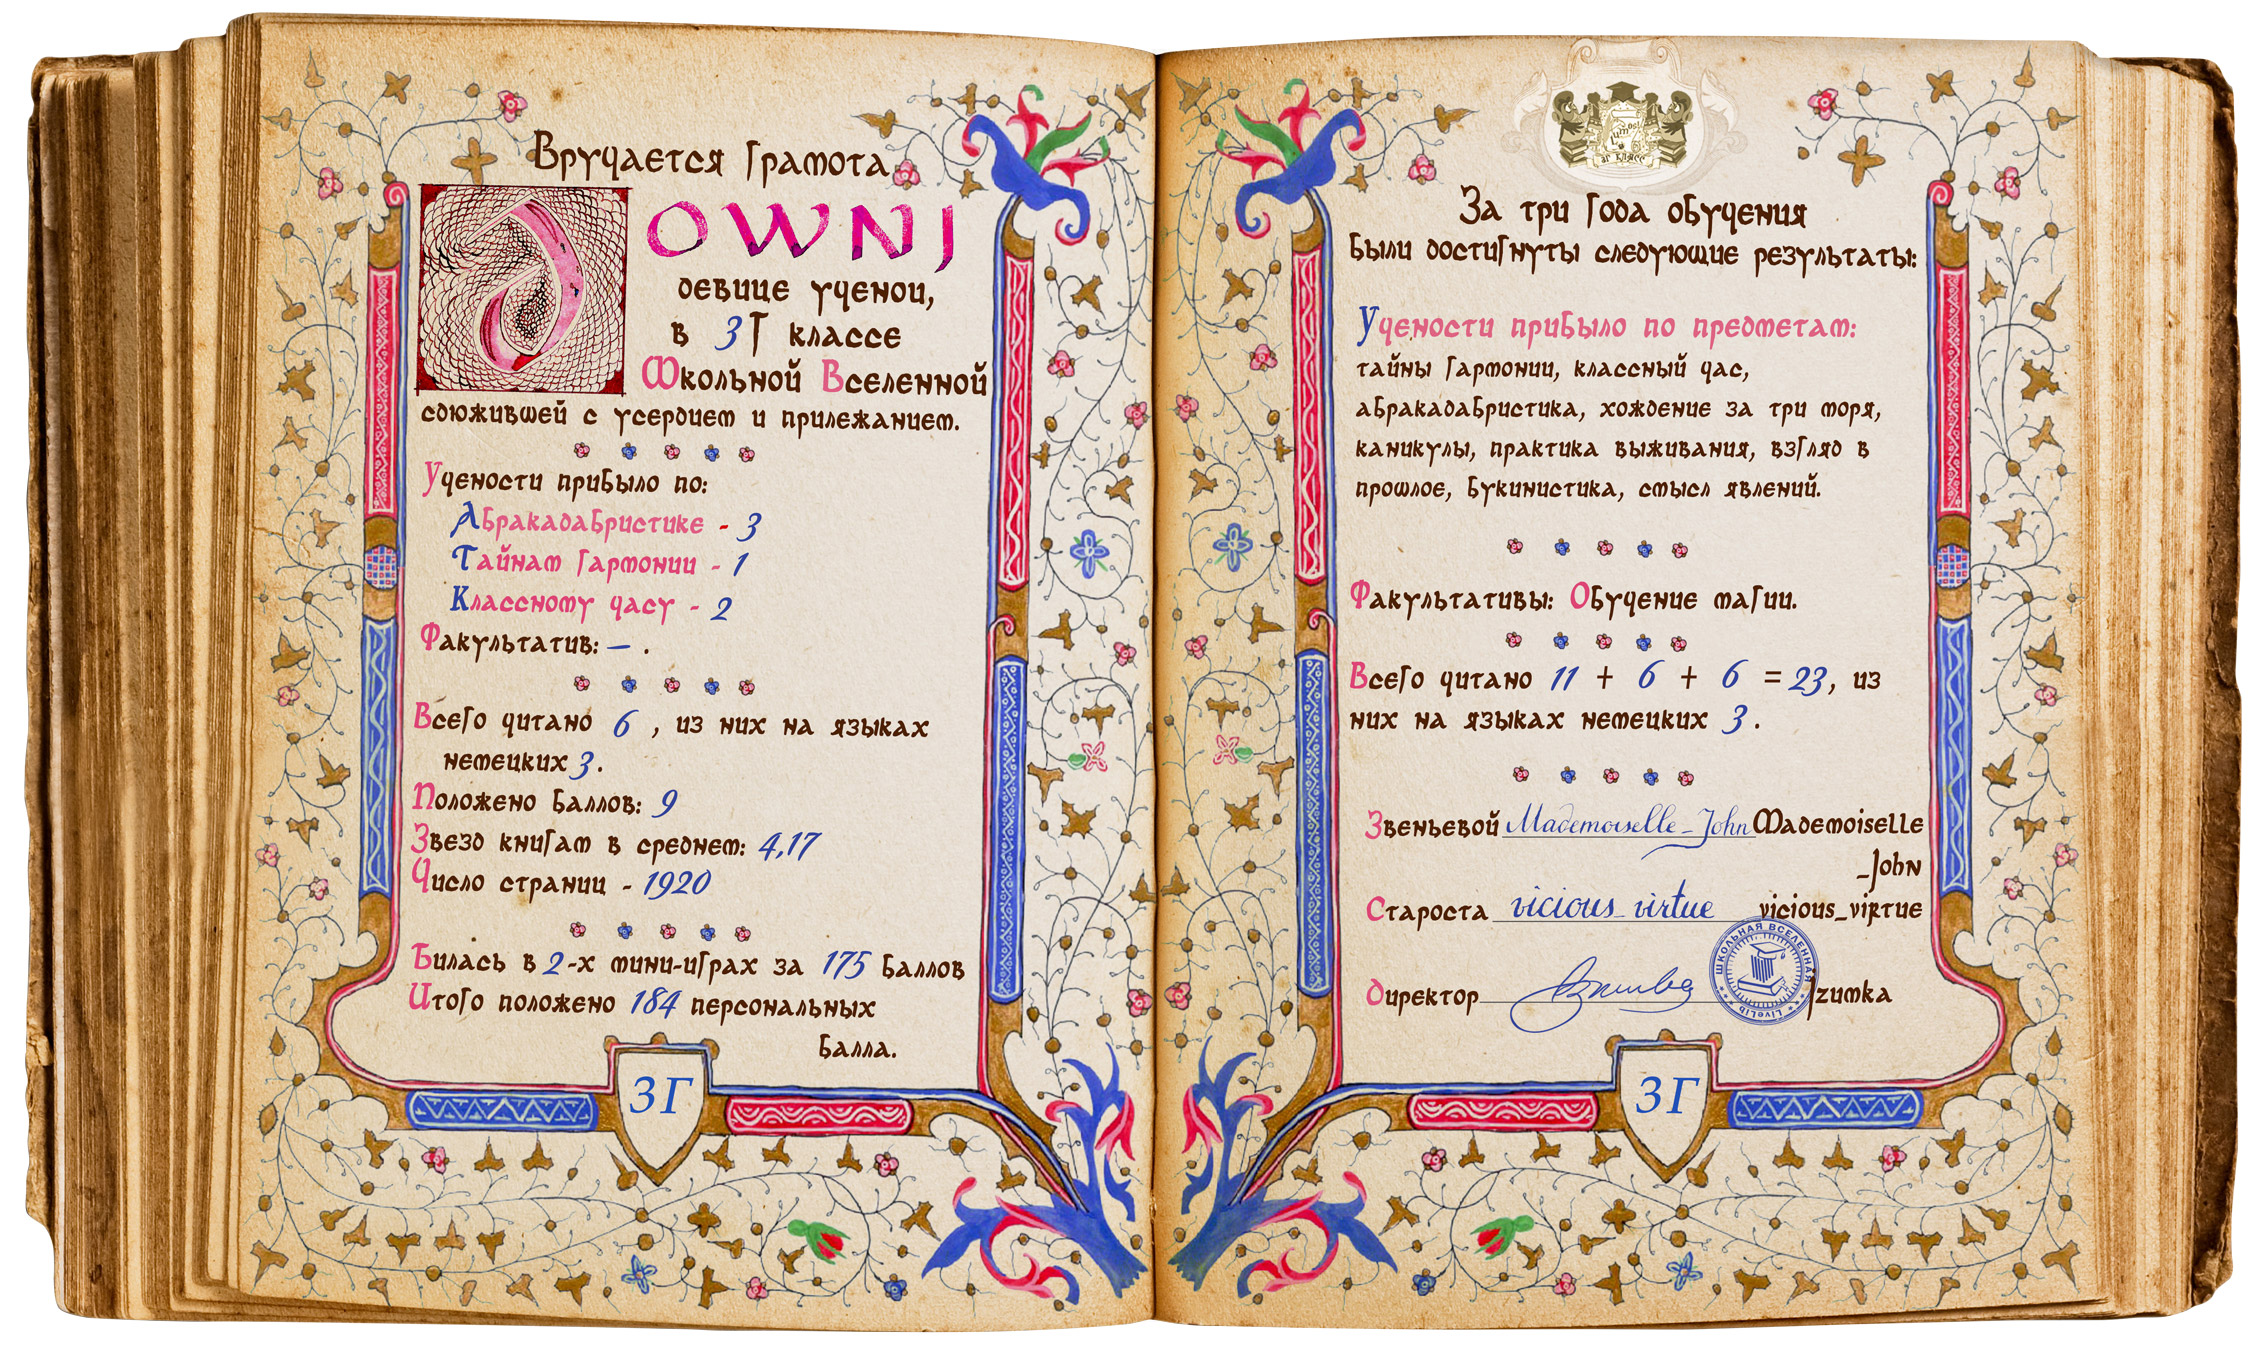 Вручается грамота
DOWNJ
девице ученои,
в 3Г классе
Школьной Вселенной
сдюжившей с усердием и прилежанием.
Учености прибыло по:
Абракадабристике - 3
Тайнам гармонии - 1
Классному часу - 2
Факультатив: – .
Всего читано 6 , из них на языках
немецких 3 .
Положено баллов: 9
Звезд книгам в среднем: 4,17
Число страниц - 1920
Билась в 2-х мини-играх за 175 баллов
Итого положено 184 персональных
балла.
3Г
3Г класс
За три года обучения
были достигнуты следующие результаты:
Учености прибыло по предметам:
тайны гармонии, классный час,
абракадабристика, хождение за три моря,
каникулы, практика выживания, взгляд в
прошлое, букинистика, смысл явлений.
Факультативы: Обучение магии.
Всего читано 11 + 6 + 6 = 23, из
них на языках немецких 3 .
Звеньевой Mademoiselle_John Mademoiselle
_John
Староста vicious_virtue vicious_virtue
Директор Izumka Izumka
ШКОЛЬНАЯ ВСЕЛЕННАЯ
LiveLib
3Г